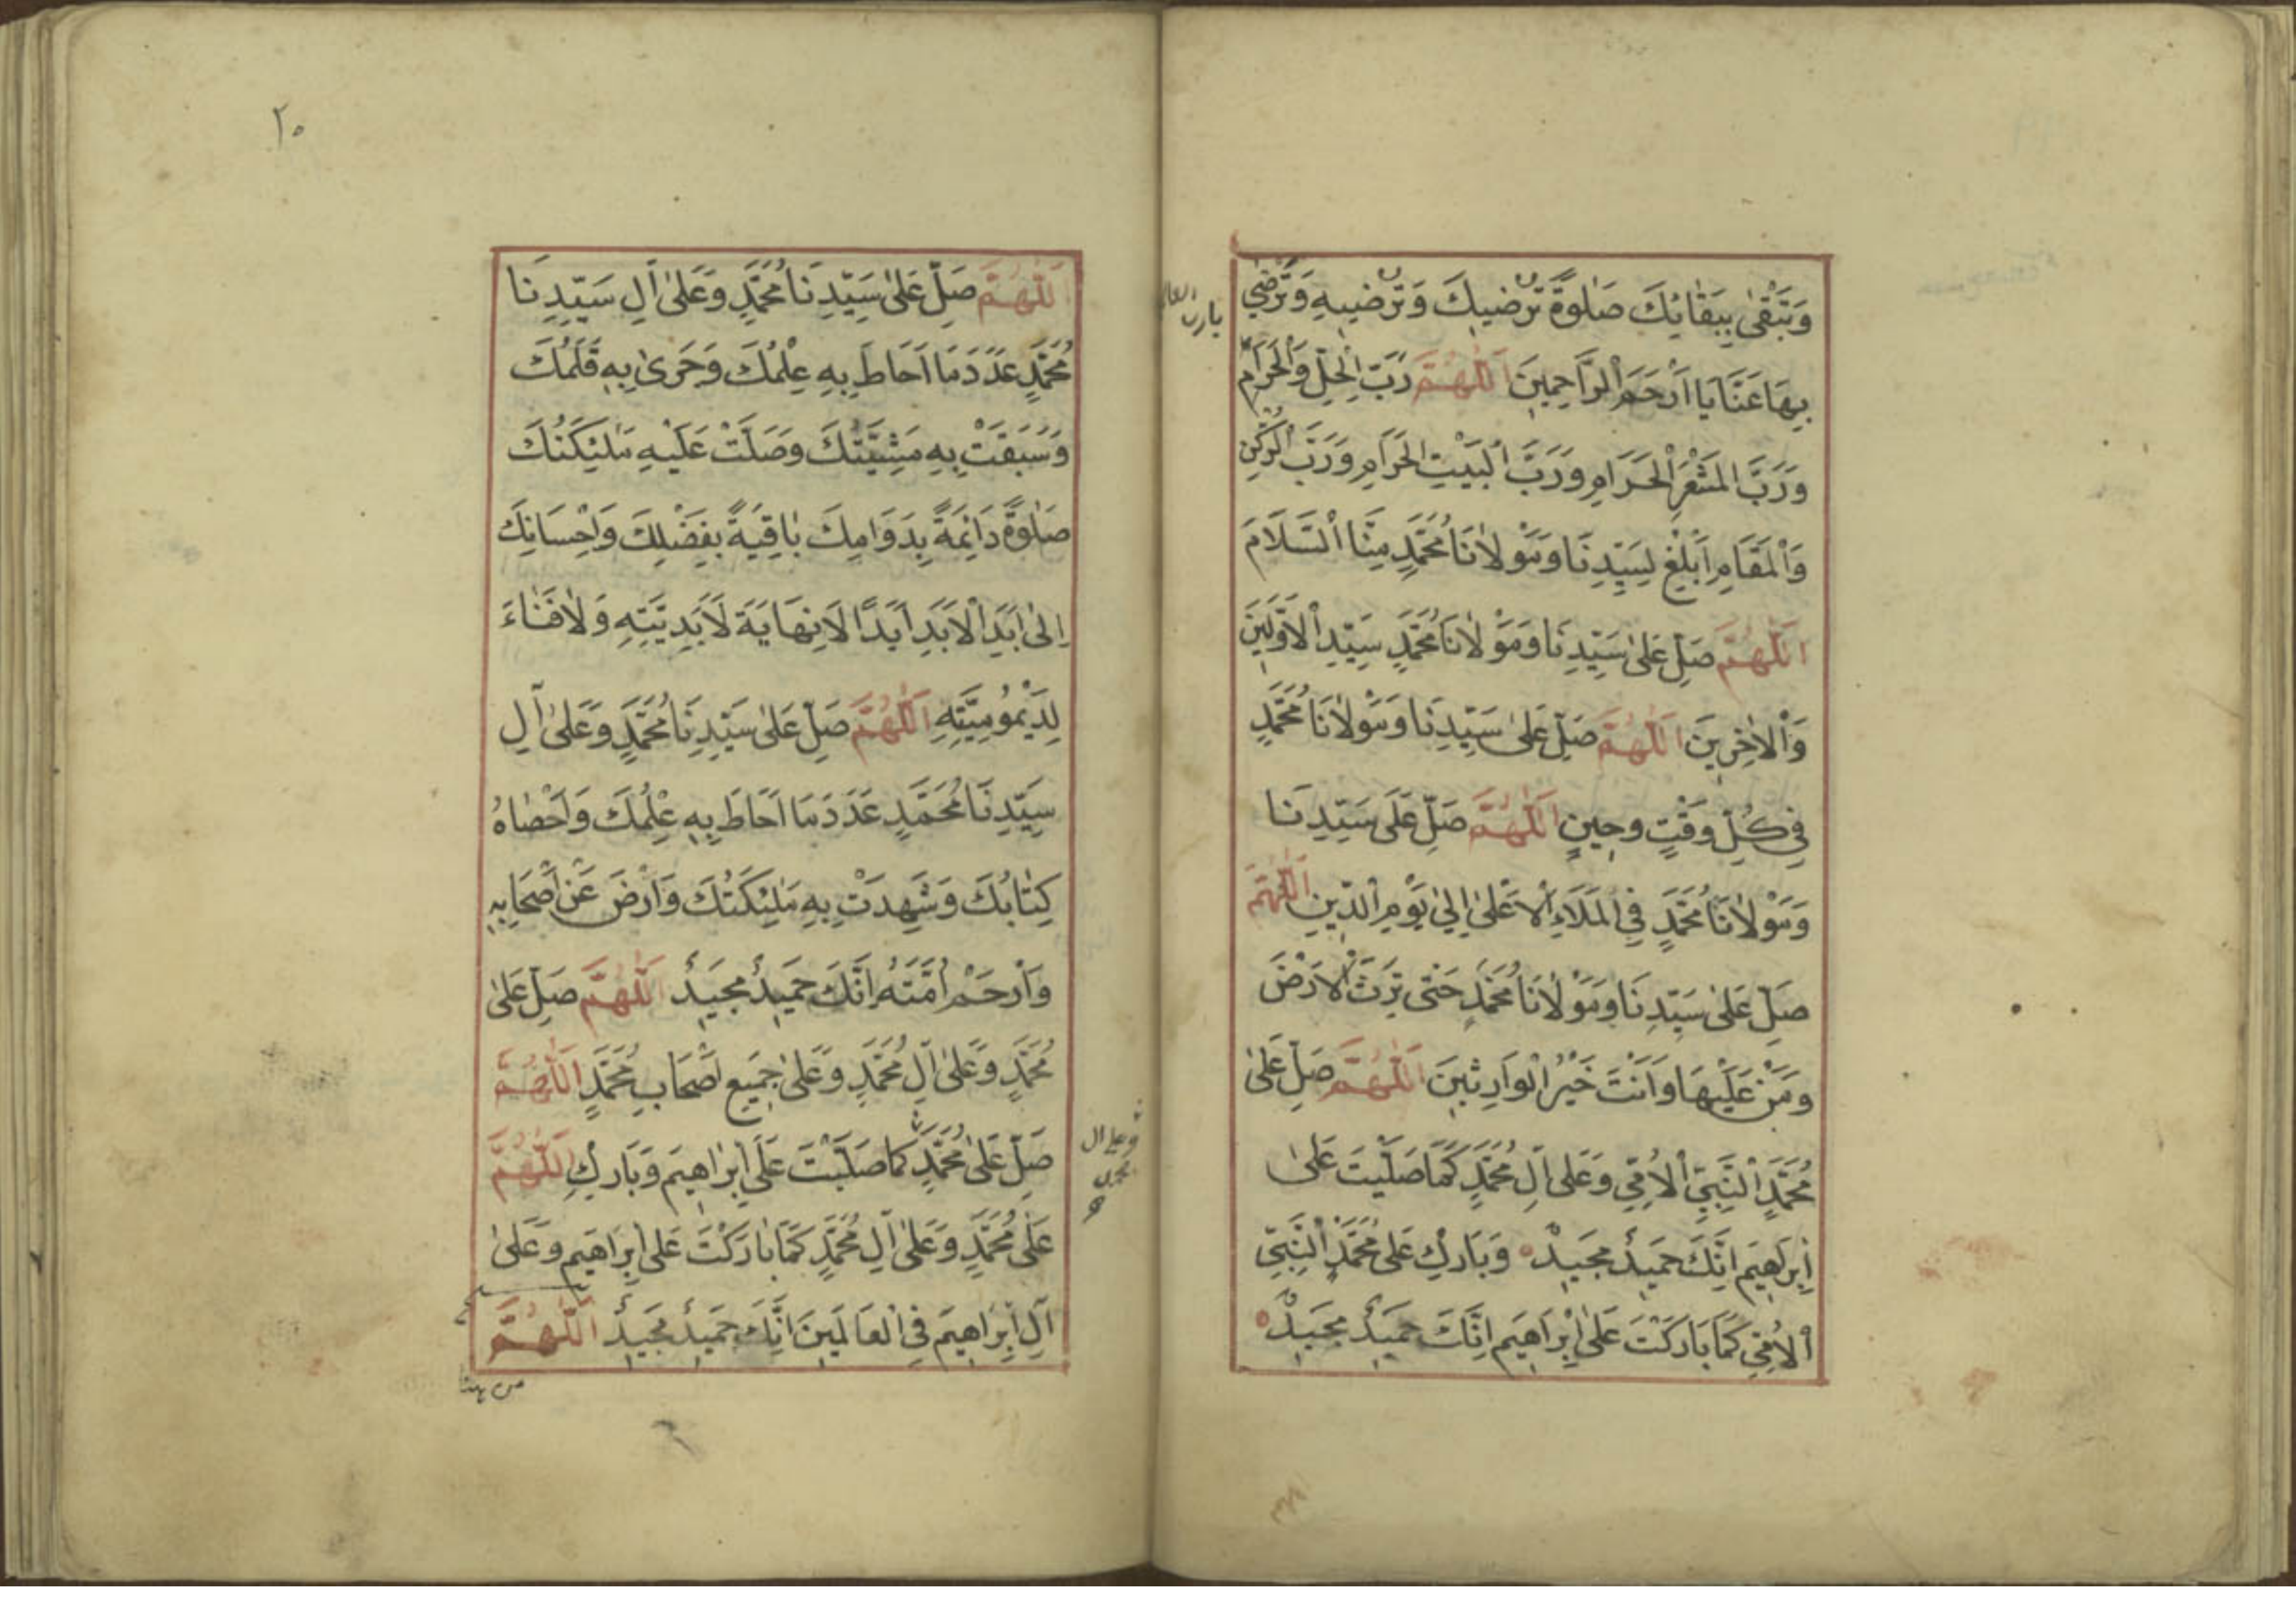 وَتَبْقٰى بِبَقَائِكَ صَلٰوةً تُرْضِيكَ وَتُرْضِيهِ وَتَرْضٰى
بِهَا عَنَّا يَا اَرْحَمَ الرَّاحِمِينَ اَللّٰهُمَّ رَبَّ الْحِلِّ وَالْحَرَامِ
وَرَبَّ الْمَشْعَرِ الْحَرَامِ وَرَبَّ الْبَيْتِ الْحَرَامِ وَرَبَّ الرُّكْنِ
وَالْمَقَامِ اَبْلِغْ لِسَيِّدِنَا وَمَوْلَانَا مُحَمَّدٍ مِنَّا السَّلَامَ
اَللّٰهُمَّ صَلِّ عَلٰى سَيِّدِنَا وَمَوْلَانَا مُحَمَّدٍ سَيِّدِ الْاَوَّلِينَ
وَالْاٰخِرِينَ اَللّٰهُمَّ صَلِّ عَلٰى سَيِّدِنَا وَمَوْلَانَا مُحَمَّدٍ
فِى كُلِّ وَقْتٍ وَحِينٍ اَللّٰهُمَّ صَلِّ عَلَى سَيِّدِنَا
وَمَوْلَانَا مُحَمَّدٍ فِى الْمَلَاءِ الْاَعْلٰى اِلٰى يَوْمِ الدِّينِ اَللّٰهُمَّ
صَلِّ عَلٰى سَيِّدِنَا وَمَوْلَانَا مُحَمَّدٍ حَتّٰى تَرِثَ الْاَرْضَ
وَمَنْ عَلَيْهَا وَاَنْتَ خَيْرُ الْوَارِثِينَ اَللّٰهُمَّ صَلِّ عَلٰى
مُحَمَّدٍ النَّبِيِّ الْاُمِّيِّ وَعَلٰى اٰلِ مُحَمَّدٍ كَمَا صَلَّيْتَ عَلٰى
اِبْرٰهِيمَ اِنَّكَ حَمِيدٌ مَجِيدٌ وَبَارِكْ عَلٰى مُحَمَّدٍ النَّبِيِّ
الْاُمِّيِّ كَمَا بَارَكْتَ عَلٰى اِبْرَاهِيمَ اِنَّكَ حَمِيدٌ مَجِيدٌ
٢٠
اَللّٰهُمَّ صَلِّ عَلٰى سَيِّدِنَا مُحَمَّدٍ وَعَلٰى اٰلِ سَيِّدِنَا
مُحَمَّدٍ عَدَدَ مَا اَحَاطَ بِهِ عِلْمُكَ وَجَرٰى بِهِ قَلَمُكَ
وَسَبَقَتْ بِهِ مَشِيَّتُكَ وَصَلَّتْ عَلَيْهِ مَلٰئِكَتُكَ
صَلٰوةً دَائِمَةً بِدَوَامِكَ بَاقِيَةً بِفَضْلِكَ وَاِحْسَانِكَ
اِلٰى اَبَدِ الْاَبَدِ اَبَدًا لَا نِهَايَةَ لِاَبَدِيَّتِهِ وَلَا فَنَاءَ
لِدَيْمُومِيَّتِهِ اَللّٰهُمَّ صَلِّ عَلٰى سَيِّدِنَا مُحَمَّدٍ وَعَلٰى اٰلِ
سَيِّدِنَا مُحَمَّدٍ عَدَدَ مَا اَحَاطَ بِهِ عِلْمُكَ وَاَحْصَاهُ
كِتَابُكَ وَشَهِدَتْ بِهِ مَلٰئِكَتُكَ وَارْضَ عَنْ اَصْحَابِهِ
وَارْحَمْ اُمَّتَهُ اِنَّكَ حَمِيدٌ مَجِيدٌ اَللّٰهُمَّ صَلِّ عَلٰى
مُحَمَّدٍ وَعَلٰى اٰلِ مُحَمَّدٍ وَعَلٰى جَمِيعِ اَصْحَابِ مُحَمَّدٍ اَللّٰهُمَّ
صَلِّ عَلٰى مُحَمَّدٍ كَمَا صَلَّيْتَ عَلٰى اِبْرَاهِيمَ وَبَارِكْ اَللّٰهُمَّ
وعلى ال
محمد
عَلٰى مُحَمَّدٍ وَعَلٰى اٰلِ مُحَمَّدٍ كَمَا بَارَكْتَ عَلٰى اِبْرَاهِيمَ وَعَلٰى
اٰلِ اِبْرَاهِيمَ فِى الْعَالَمِينَ اِنَّكَ حَمِيدٌ مَجِيدٌ اَللّٰهُمَّ